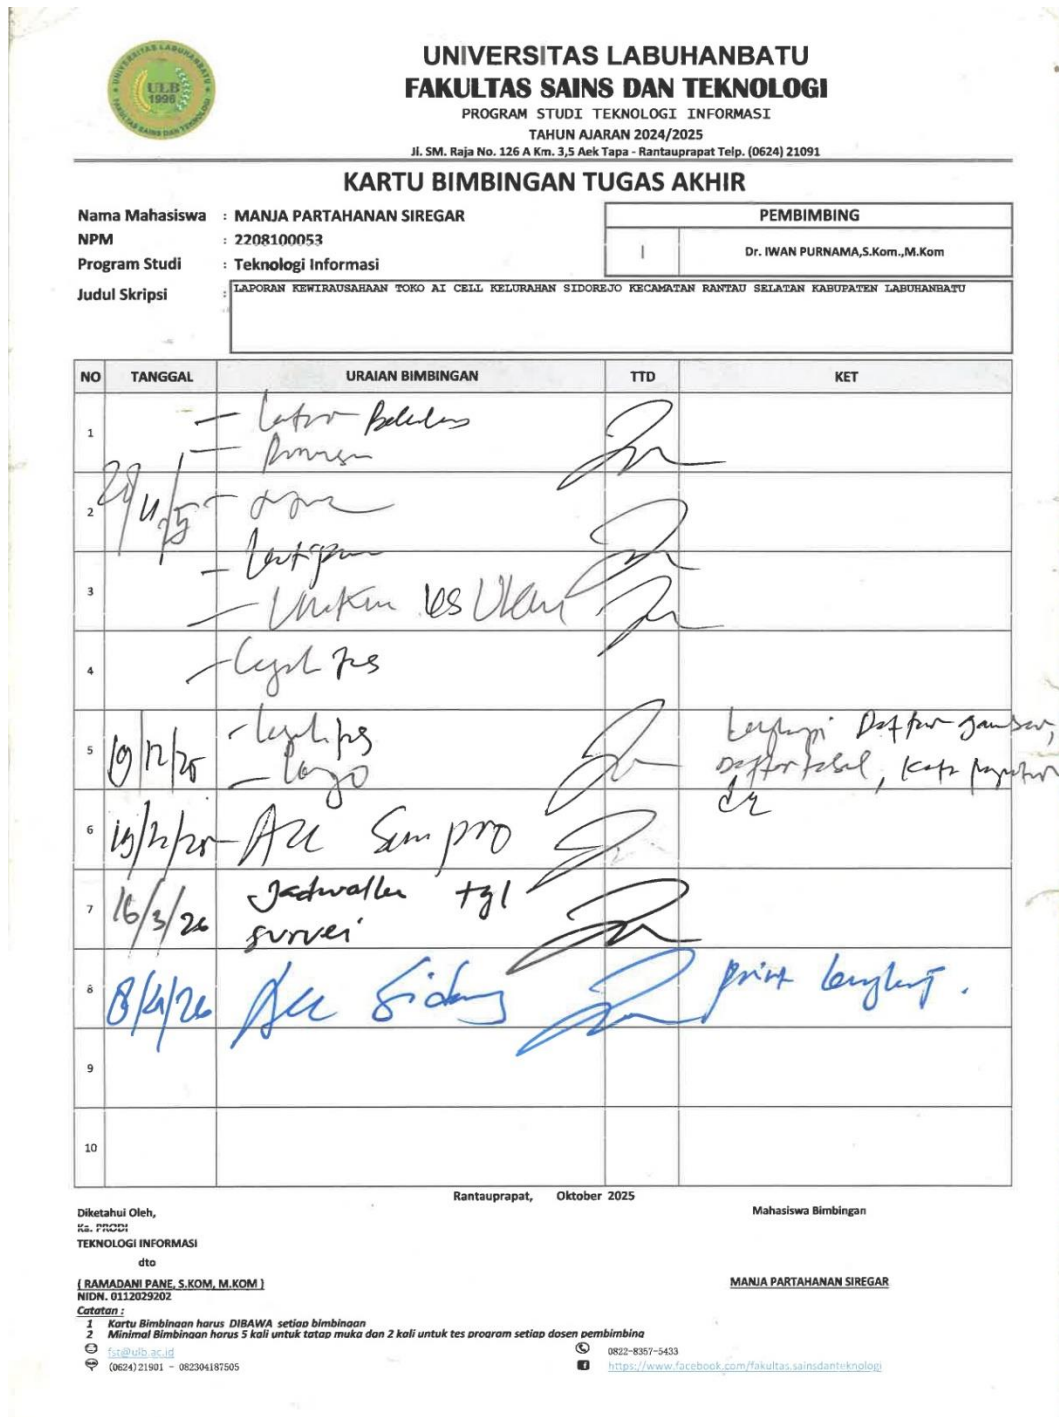 UNIVERSITAS LABUHANBATU
FAKULTAS SAINS DAN TEKNOLOGI
PROGRAM STUDI TEKNOLOGI INFORMASI
TAHUN AJARAN 2024/2025
Jl. SM. Raja No. 126 A Km. 3,5 Aek Tapa - Rantauprapat Telp. (0624) 21091
UNIVERSITAS LABUHANBATU
ULB
1998
FAKULTAS SAINS DAN TEKNOLOGI
KARTU BIMBINGAN TUGAS AKHIR
Nama Mahasiswa : MANJA PARTAHANAN SIREGAR
NPM : 2208100053
Program Studi : Teknologi Informasi
Judul Skripsi : LAPORAN KEWIRAUSAHAAN TOKO AI CELL KELURAHAN SIDOREJO KECAMATAN RANTAU SELATAN KABUPATEN LABUHANBATU
PEMBIMBING
I Dr. IWAN PURNAMA,S.Kom.,M.Kom
NO TANGGAL URAIAN BIMBINGAN TTD KET
1 - Latar
2
3
4
5 19/12/25 Daftar gambar,
Daftar tabel, Kata
6 19/12/25 - Acc Sempro
7 16/3/26 Jadwalkan tgl
survei
8 8/4/26 Acc Sidang print lengkap.
9
10
Rantauprapat, Oktober 2025
Diketahui Oleh,
Ka. PRODI
TEKNOLOGI INFORMASI
dto
( RAMADANI PANE, S.KOM, M.KOM )
NIDN. 0112029202
Mahasiswa Bimbingan
MANJA PARTAHANAN SIREGAR
Catatan :
1 Kartu Bimbingan harus DIBAWA setiap bimbingan
2 Minimal Bimbingan harus 5 kali untuk tatap muka dan 2 kali untuk tes program setiap dosen pembimbing
fst@ulb.ac.id
(0624) 21901 - 082304187505
0822-8357-5433
https://www.facebook.com/fakultas.sainsdanteknologi